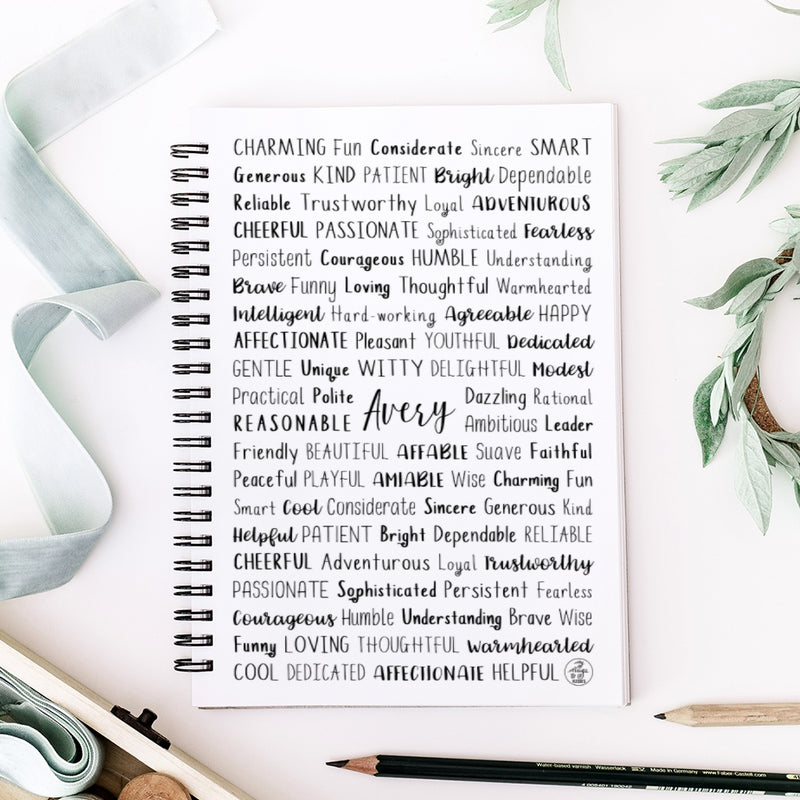 CHARMING Fun Considerate Sincere SMART
Generous KIND PATIENT Bright Dependable
Reliable Trustworthy Loyal ADVENTUROUS
CHEERFUL PASSIONATE Sophisticated Fearless
Persistent Courageous HUMBLE Understanding
Brave Funny Loving Thoughtful Warmhearted
Intelligent Hard-working Agreeable HAPPY
AFFECTIONATE Pleasant YOUTHFUL Dedicated
GENTLE Unique WITTY DELIGHTFUL Modest
Practical Polite Dazzling Rational
Avery
REASONABLE Ambitious Leader
Friendly BEAUTIFUL AFFABLE Suave Faithful
Peaceful PLAYFUL AMIABLE Wise Charming Fun
Smart Cool Considerate Sincere Generous Kind
Helpful PATIENT Bright Dependable RELIABLE
CHEERFUL Adventurous Loyal Trustworthy
PASSIONATE Sophisticated Persistent Fearless
Courageous Humble Understanding Brave Wise
Funny LOVING THOUGHTFUL Warmhearted
COOL DEDICATED AFFECTIONATE HELPFUL
Water-based varnish Wasserlack Made in Germany www.Faber-Castell.com